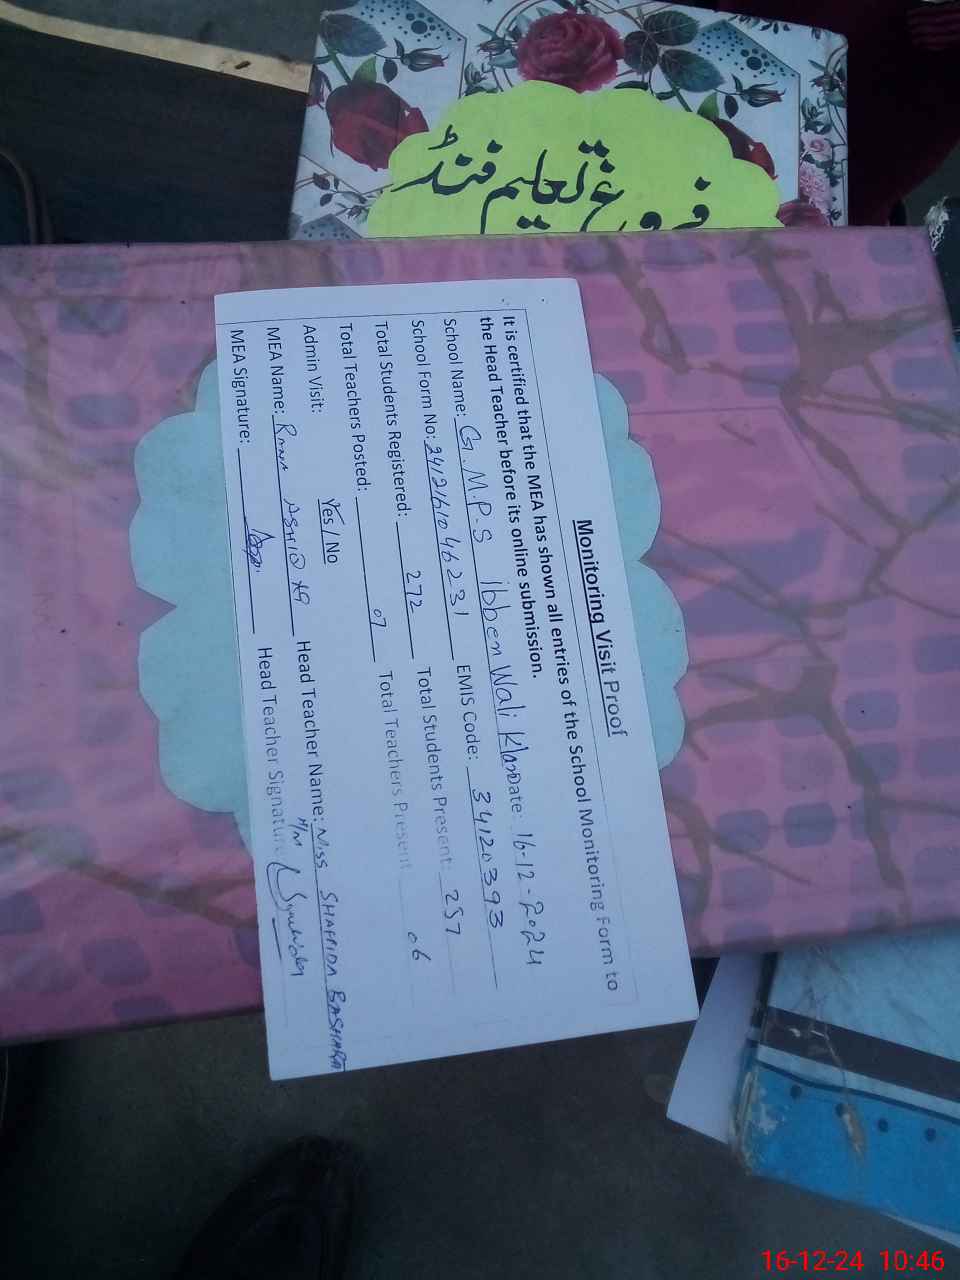 فروغ تعلیم فنڈ
Monitoring Visit Proof
It is certified that the MEA has shown all entries of the School Monitoring Form to
the Head Teacher before its online submission.
School Name: G.M.P.S Ibben Wali Date: 16-12-2024
School Form No: 2412161046231 EMIS Code: 34120393
Total Students Registered: 272 Total Students Present: 257
Total Teachers Posted: 07 Total Teachers Present 06
Admin Visit: Yes / No
MEA Name: Rana ASHIQ Head Teacher Name: Miss BASHARAT
MEA Signature: Head Teacher Signature
16-12-24 10:46